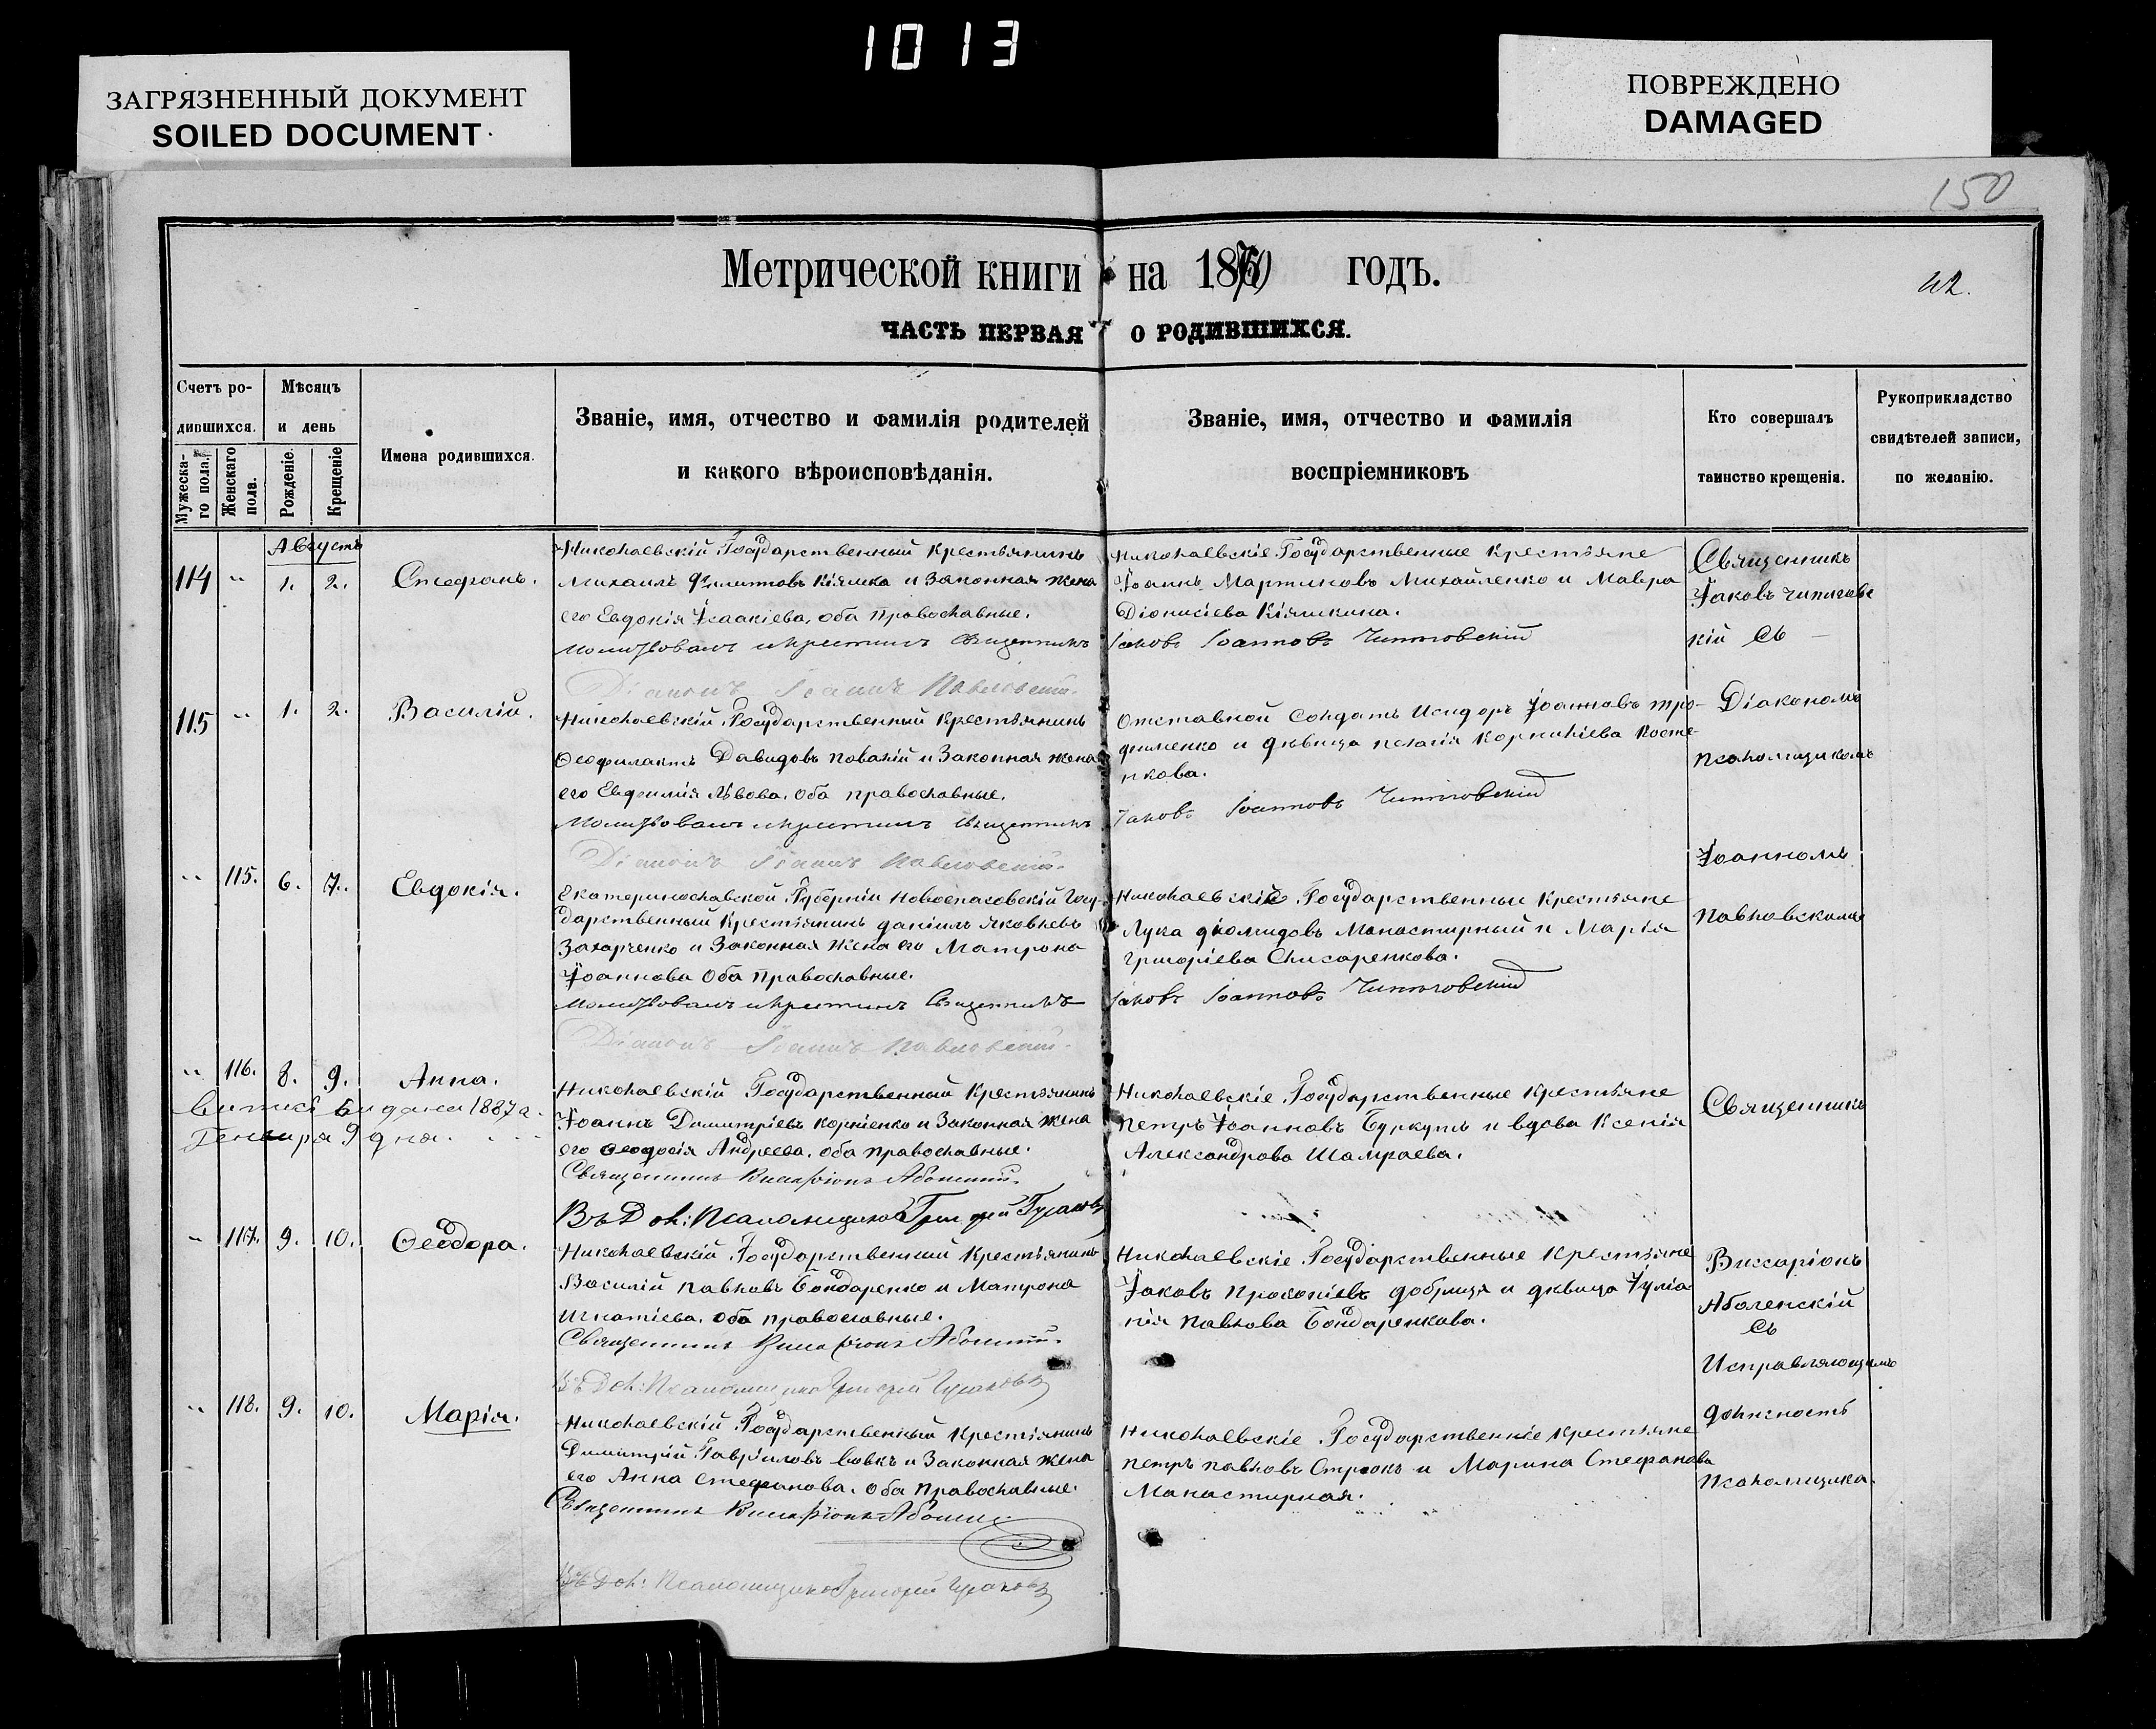 1013
ЗАГРЯЗНЕННЫЙ ДОКУМЕНТ
SOILED DOCUMENT
ПОВРЕЖДЕНО
DAMAGED
150
Метрической книги на 1870 годъ.
42.
ЧАСТЬ ПЕРВАЯ О РОДИВШИХСЯ.
Счетъ ро-
дившихся.
Мужеска-
го пола.
Женскаго
пола.
Мѣсяцъ
и день
Рожденіе.
Крещеніе
Имена родившихся.
Званіе, имя, отчество и фамилія родителей
и какого вѣроисповѣданія.
Званіе, имя, отчество и фамилія
воспріемниковъ
Кто совершалъ
таинство крещенія.
Рукоприкладство
свидѣтелей записи,
по желанію.
Августъ
114 " 1. 2. Стефанъ.
Николаевскій Государственный крестьянинъ
Михаилъ Филиповъ Кіяшка и Законная жена
его Евдокія Ісаакіева, оба православные.
Молитвовалъ и крестилъ Священникъ
Діаконъ Іоаннъ Павловскій.
Николаевскіе Государственные крестьяне
Іоаннъ Мартиновъ Михайленко и Мавра
Діонисіева Кіяшкина.
Іаковъ Іоанновъ
Священникъ
Іаковъ
кій съ
115 " 1. 2. Василій.
Николаевскій Государственный крестьянинъ
Ѳеофилактъ Давидовъ и Законная жена
его Евфимія Львова. Оба православные.
Молитвовалъ и крестилъ Священникъ
Діаконъ Іоаннъ Павловскій.
Отставной Солдатъ Исидоръ Іоанновъ Тро-
фименко и дѣвица Пелагія Корниліева Косте-
нкова.
Іаковъ Іоанновъ
Діакономъ
псаломщикомъ
" 115. 6. 7. Евдокія.
Екатеринославской Губерніи Новоспасовскій Госу-
дарственный крестьянинъ Даніилъ Яковлевъ
Захарченко и Законная жена его Матрона
Іоаннова Оба Православные.
Молитвовалъ и крестилъ Священникъ
Діаконъ Іоаннъ Павловскій.
Николаевскіе Государственные Крестьяне
Лука Діомидовъ Манастирный и Марія
Григоріева Слисаренкова.
Іаковъ Іоанновъ
Іоанномъ
Павловскимъ
" 116. 8. 9. Анна.
выдана 1887 г.
Генваря 9 дня.
Николаевскій Государственный крестьянинъ
Іоаннъ Димитріевъ Корніенко и Законная жена
его Ѳеодосія Андреева. оба православные.
Священникъ Виссаріонъ
Въ Дол: Псаломщика Григорій Гусаковъ
Николаевскіе Государственные крестьяне
Петръ Іоанновъ Буркутъ и вдова Ксенія
Александрова Шамраева.
Священникъ
" 117. 9. 10. Ѳеодора.
Николаевскій Государственный Крестьянинъ
Василій Павловъ Бондаренко и Матрона
Игнатіева. Оба православные.
Священникъ Виссаріонъ
Въ Дол: Псаломщика Григорій Гусаковъ
Николаевскіе Государственные крестьяне
Іаковъ Прокопіевъ и дѣвица Іуліа-
нія Павлова Бондаренкова.
Виссаріонъ
Аболенскій
съ
Исправляющимъ
" 118. 9. 10. Марія.
Николаевскій Государственный крестьянинъ
Димитрій Гавріиловъ Вовкъ и Законная жена
его Анна Стефанова. Оба Православные.
Священникъ Виссаріонъ
Въ Дол: Псаломщика Григорій Гусаковъ
Николаевскіе Государственніе Крестьяне
Петръ Павловъ и Марина Стефанова
Манастирная.
должность
псаломщика.